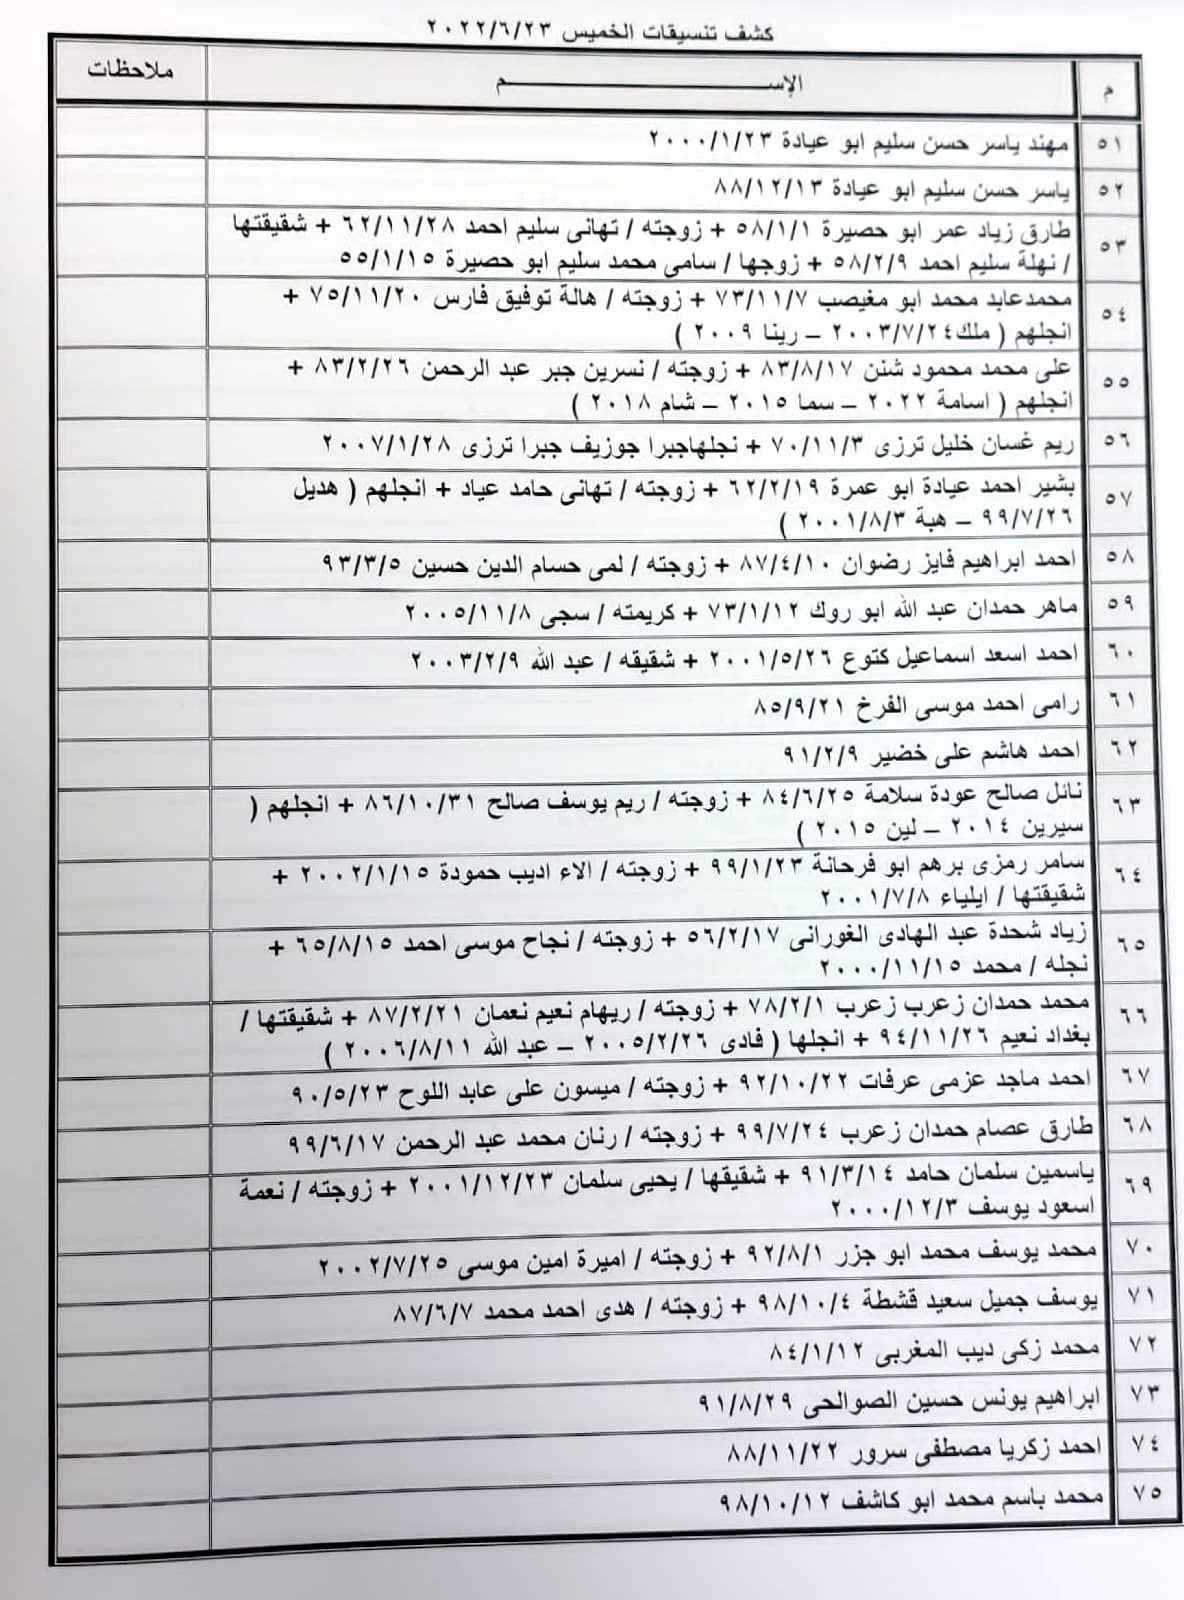 كشف تنسيقات الخميس ٢٠٢٢/٦/٢٣
م الإســـــــــم ملاحظات
٥١ مهند ياسر حسن سليم ابو عيادة ٢٠٠٠/١/٢٣
٥٢ ياسر حسن سليم ابو عيادة ٨٨/١٢/١٣
٥٣ طارق زياد عمر ابو حصيرة ٥٨/١/١ + زوجته / تهانى سليم احمد ٦٢/١١/٢٨ + شقيقتها
/ نهلة سليم احمد ٥٨/٢/٩ + زوجها / سامى محمد سليم ابو حصيرة ٥٥/١/١٥
٥٤ محمدعابد محمد ابو مغيصب ٧٣/١١/٧ + زوجته / هالة توفيق فارس ٧٥/١١/٢٠ +
انجلهم ( ملك٢٠٠٣/٧/٢٤ – رينا ٢٠٠٩ )
٥٥ على محمد محمود شنن ٨٣/٨/١٧ + زوجته / نسرين جبر عبد الرحمن ٨٣/٢/٢٦ +
انجلهم ( اسامة ٢٠٢٢ – سما ٢٠١٥ – شام ٢٠١٨ )
٥٦ ريم غسان خليل ترزى ٧٠/١١/٣ + نجلهاجبرا جوزيف جبرا ترزى ٢٠٠٧/١/٢٨
٥٧ بشير احمد عيادة ابو عمرة ٦٢/٢/١٩ + زوجته / تهانى حامد عياد + انجلهم ( هديل
٩٩/٧/٢٦ – هبة ٢٠٠١/٨/٣ )
٥٨ احمد ابراهيم فايز رضوان ٨٧/٤/١٠ + زوجته / لمى حسام الدين حسين ٩٣/٣/٥
٥٩ ماهر حمدان عبد الله ابو روك ٧٣/١/١٢ + كريمته / سجى ٢٠٠٥/١١/٨
٦٠ احمد اسعد اسماعيل كتوع ٢٠٠١/٥/٢٦ + شقيقه / عبد الله ٢٠٠٣/٢/٩
٦١ رامى احمد موسى الفرخ ٨٥/٩/٢١
٦٢ احمد هاشم على خضير ٩١/٢/٩
٦٣ نائل صالح عودة سلامة ٨٤/٦/٢٥ + زوجته / ريم يوسف صالح ٨٦/١٠/٣١ + انجلهم (
سيرين ٢٠١٤ – لين ٢٠١٥ )
٦٤ سامر رمزى برهم ابو فرحانة ٩٩/١/٢٣ + زوجته / الاء اديب حمودة ٢٠٠٢/١/١٥ +
شقيقتها / ايلياء ٢٠٠١/٧/٨
٦٥ زياد شحدة عبد الهادى الغورانى ٥٦/٢/١٧ + زوجته / نجاح موسى احمد ٦٥/٨/١٥ +
نجله / محمد ٢٠٠٠/١١/١٥
٦٦ محمد حمدان زعرب زعرب ٧٨/٢/١ + زوجته / ريهام نعيم نعمان ٨٧/٢/٢١ + شقيقتها /
بغداد نعيم ٩٤/١١/٢٦ + انجلها ( فادى ٢٠٠٥/٢/٢٦ – عبد الله ٢٠٠٦/٨/١١ )
٦٧ احمد ماجد عزمى عرفات ٩٢/١٠/٢٢ + زوجته / ميسون على عابد اللوح ٩٠/٥/٢٣
٦٨ طارق عصام حمدان زعرب ٩٩/٧/٢٤ + زوجته / رنان محمد عبد الرحمن ٩٩/٦/١٧
٦٩ ياسمين سلمان حامد ٩١/٣/١٤ + شقيقها / يحيى سلمان ٢٠٠١/١٢/٢٣ + زوجته / نعمة
اسعود يوسف ٢٠٠٠/١٢/٣
٧٠ محمد يوسف محمد ابو جزر ٩٢/٨/١ + زوجته / اميرة امين موسى ٢٠٠٢/٧/٢٥
٧١ يوسف جميل سعيد قشطة ٩٨/١٠/٤ + زوجته / هدى احمد محمد ٨٧/٦/٧
٧٢ محمد زكى ديب المغربى ٨٤/١/١٢
٧٣ ابراهيم يونس حسين الصوالحى ٩١/٨/٢٩
٧٤ احمد زكريا مصطفى سرور ٨٨/١١/٢٢
٧٥ محمد باسم محمد ابو كاشف ٩٨/١٠/١٢